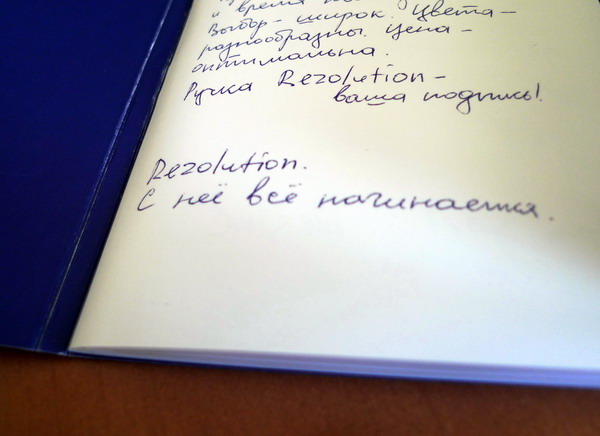 и время
Выбор - широк. Цвета -
разнообразны. Цена -
оптимальна.
Ручка Rezolution -
ваша подпись!
Rezolution.
С неё всё начинается.